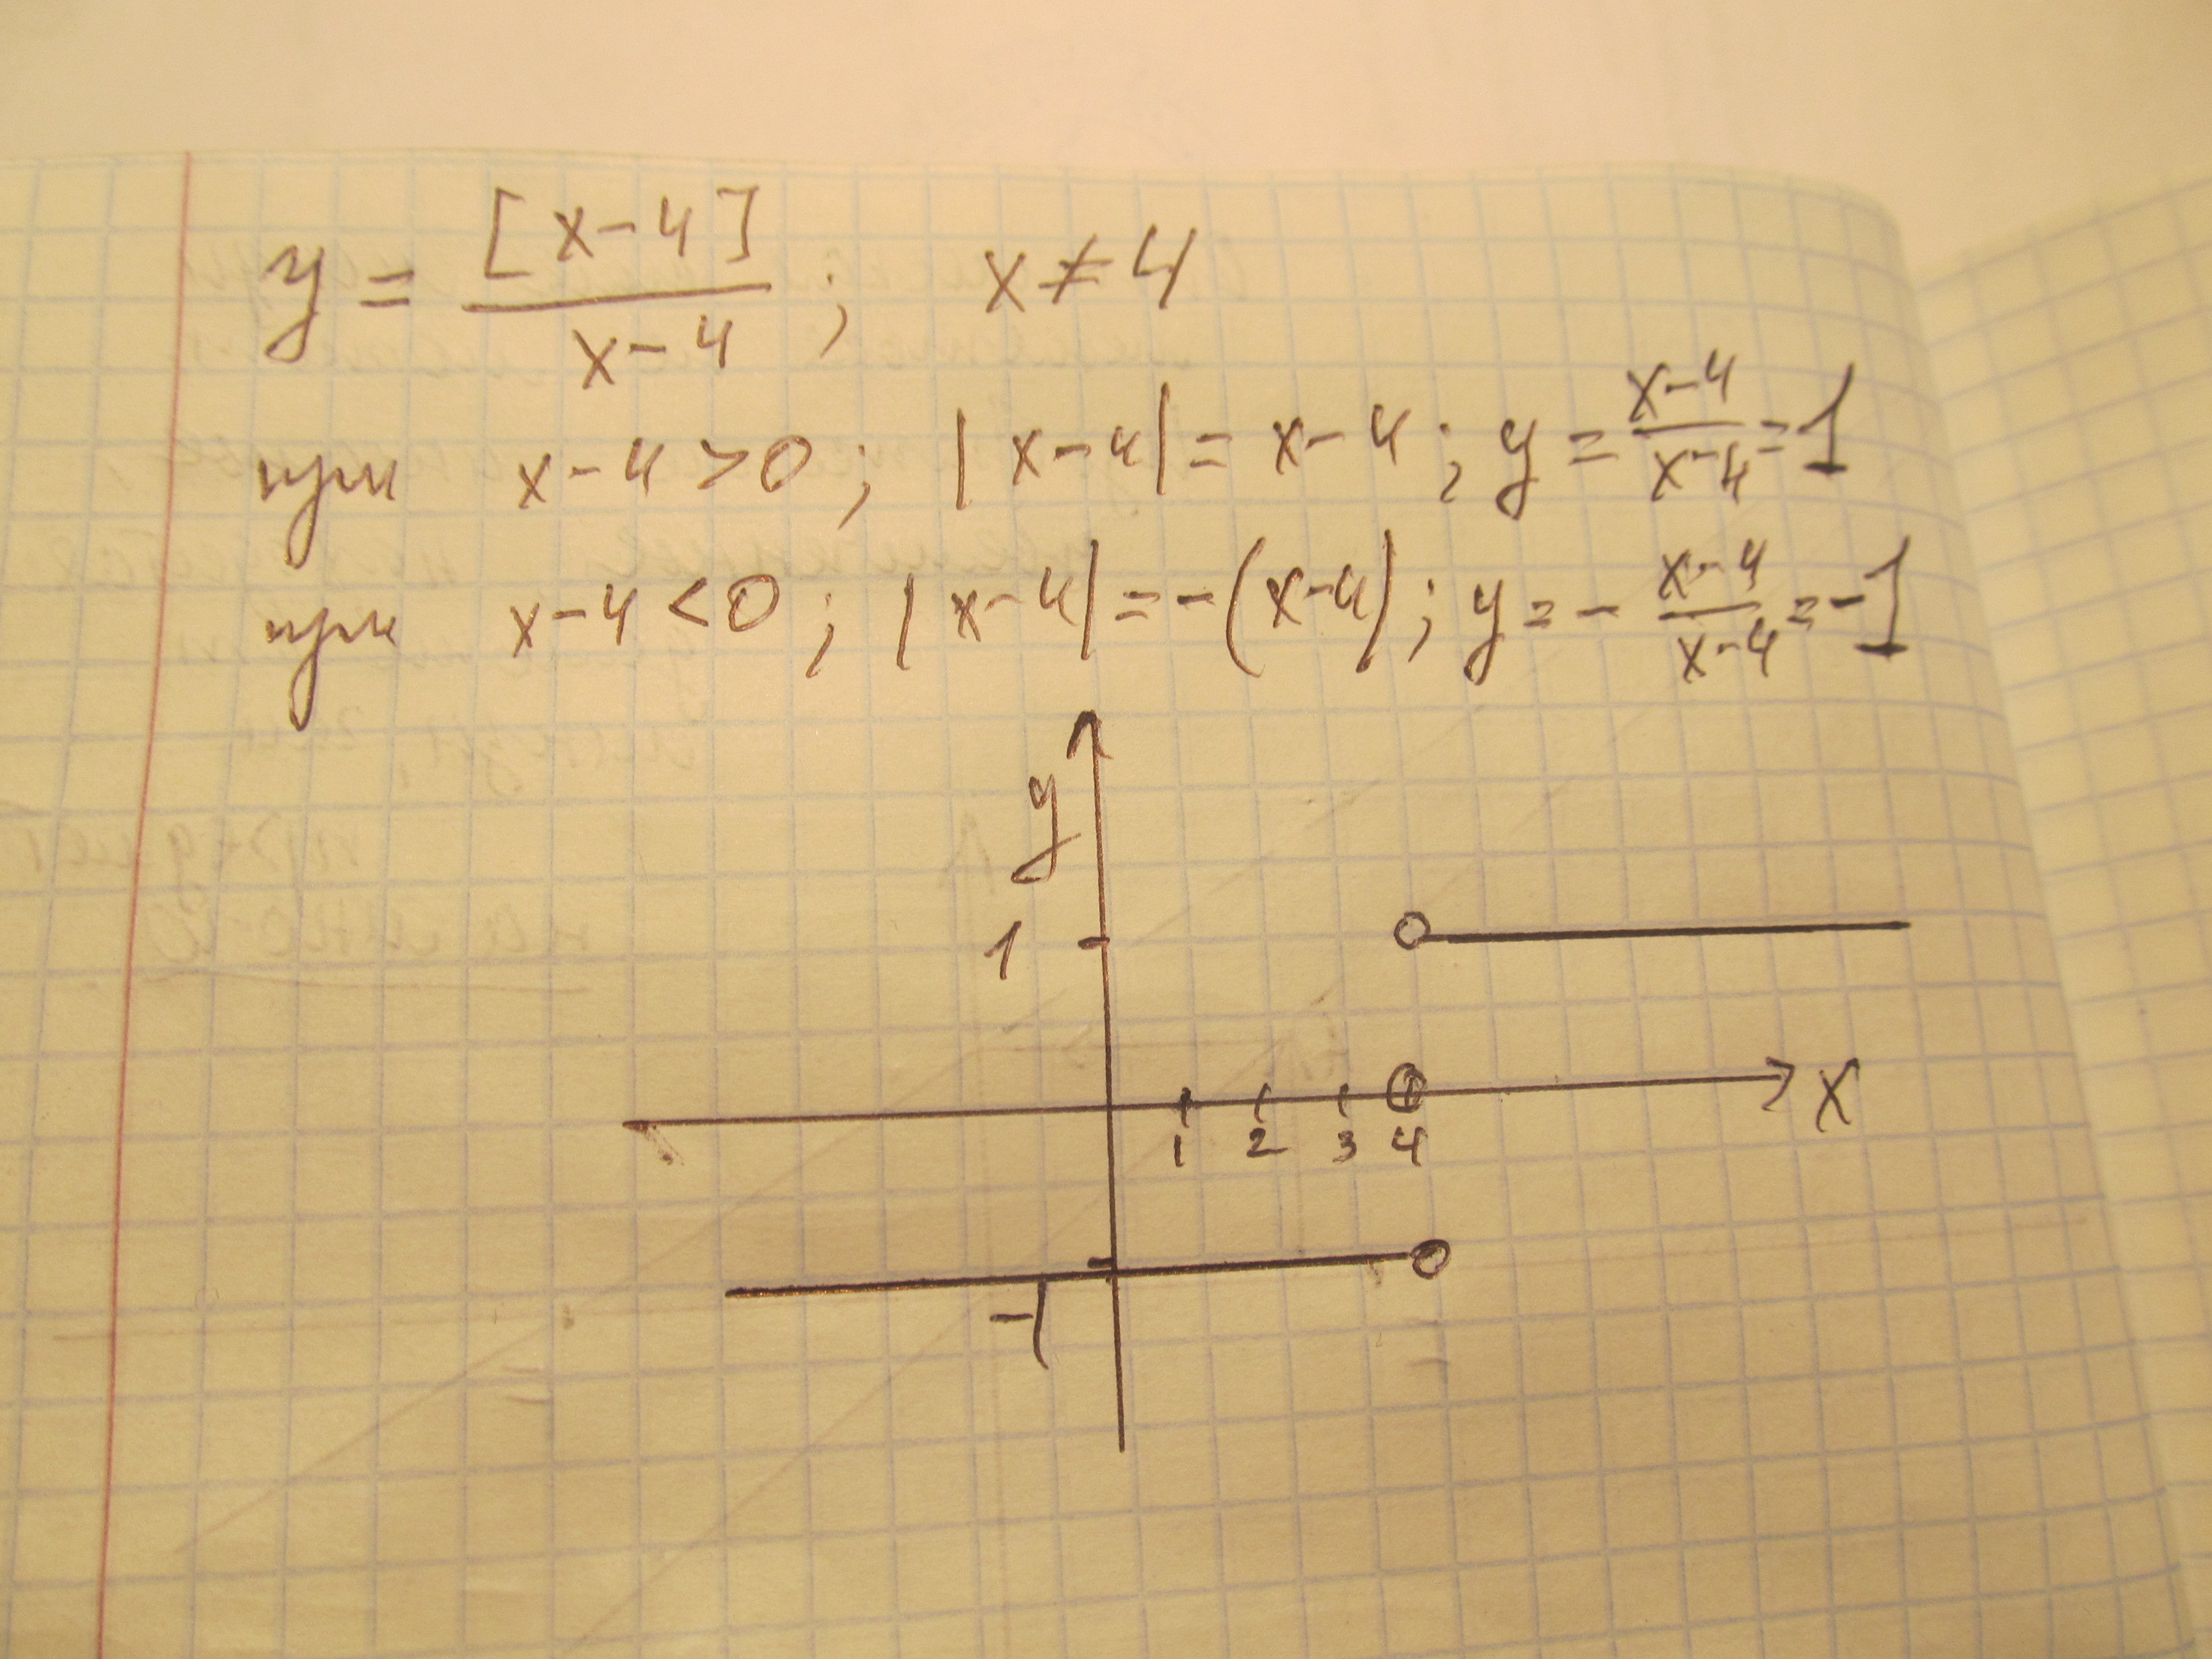 y = [x-4] / x-4 ; x ≠ 4
при x-4 > 0 ; |x-4| = x-4 ; y = x-4 / x-4 = 1
при x-4 < 0 ; |x-4| = -(x-4) ; y = - x-4 / x-4 = -1
y
1
x
1 2 3 4
-1